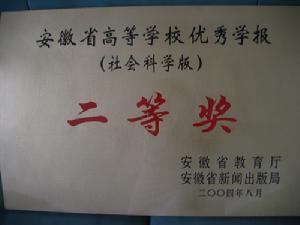 安徽省高等学校优秀学报
(社会科学版)
二等奖
安徽省教育厅
安徽省新闻出版局
二〇〇四年八月